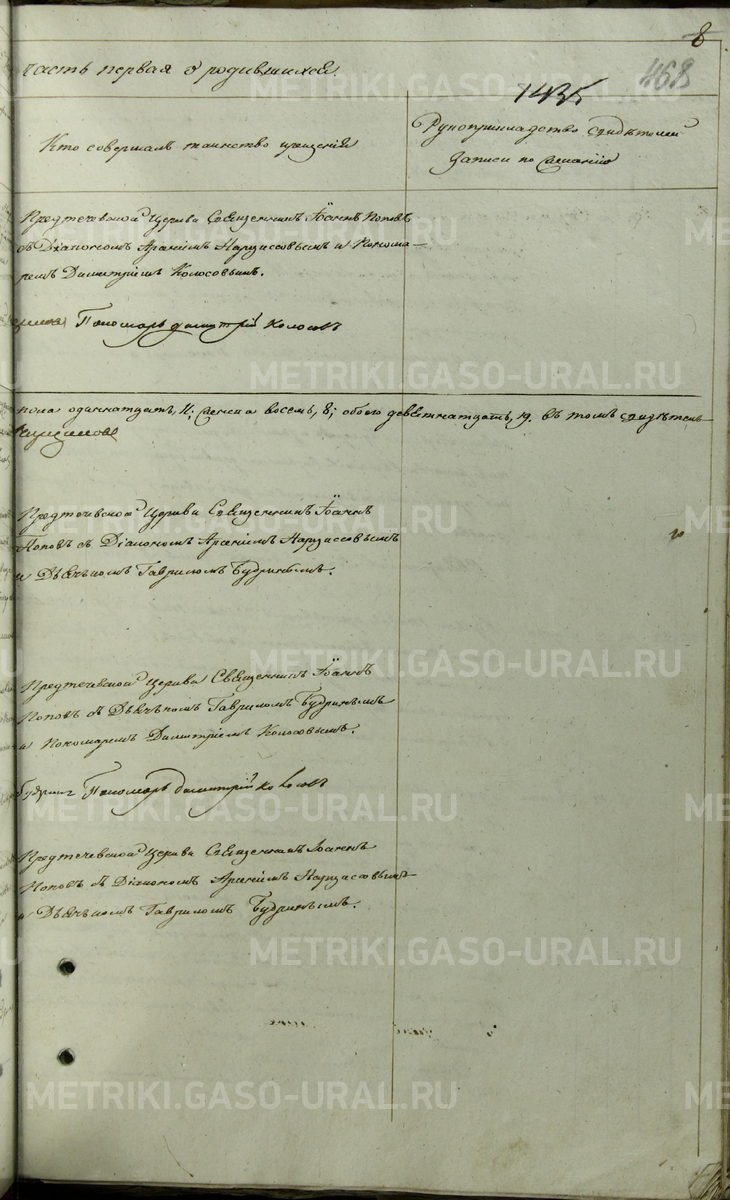 8
468
часть первая о родившихся.
1435
Кто совершалъ таинство крещенія
Рукоприкладство свидѣтелей
записи по желанію
Предтечевской Церкви Священникъ Іоаннъ Поповъ
съ Діакономъ Арсеніемъ Нарциссовымъ и Понома-
ремъ Димитріемъ Колосовымъ.
Пономарь Димитрій Колосовъ
METRIKI.GASO-URAL.RU
пола одиннатцать, 11; женска восемь, 8; обоего девятнатцать, 19. въ томъ свидѣтель-
Предтечевской Церкви Священникъ Іоаннъ
METRIKI.GASO-URAL.RU
Поповъ съ Діакономъ Арсеніемъ Нарциссовымъ
и Дьячкомъ Гавриломъ Будринымъ.
Предтечевской Церкви Священникъ Іоаннъ
METRIKI.GASO-URAL.RU
Поповъ съ Дьячкомъ Гавриломъ Будринымъ
и Пономаремъ Димитріемъ Колосовымъ.
Будринъ Пономарь Димитрій Колосовъ
METRIKI.GASO-URAL.RU
Предтечевской Церкви Священникъ Іоаннъ
Поповъ съ Діакономъ Арсеніемъ Нарциссовымъ
и Дьячкомъ Гавриломъ Будринымъ.
METRIKI.GASO-URAL.RU
METRIKI.GASO-URAL.RU